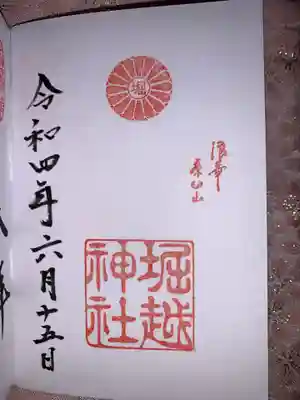 浪華
茶臼山
堀越
神社
令和四年六月十五日